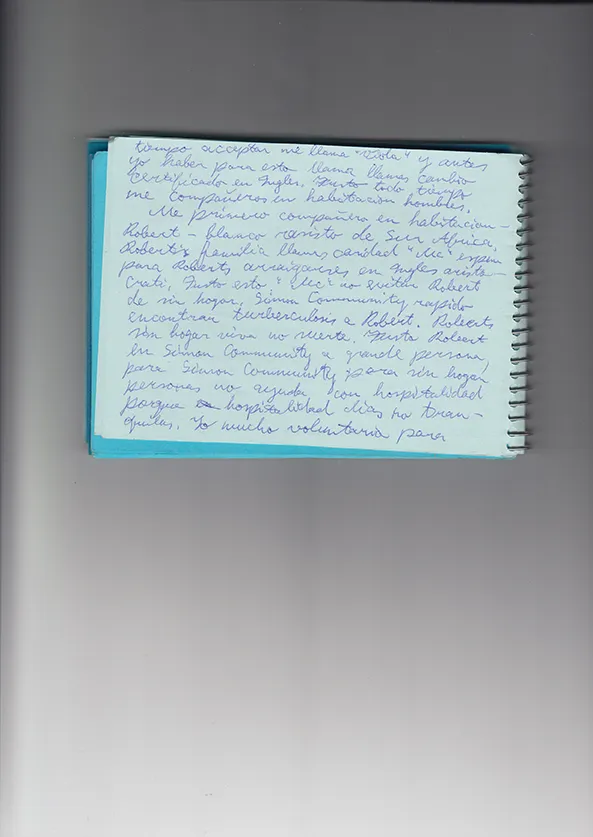 tiempo acceptar me llama "Viola" y antes
yo haber para esto llama llamas cambio
certificados en Ingles. Justo todo tiempo
me compañeros en habitacion hombles.
Me primero compañero en habitacion -
Robert - blanco rasisto de Sur Africa,
Robert's familia llamas caridad "Mc"
para Roberts arraigarses en Ingles aristo-
crati, Justo esto "Mc" no evitar Robert
de sin hogar, Simon Community rapido
encontrar turberculosis a Robert. Roberts
sin hogar viva no muerte. Justo Robert
en Simon Community a grande persona,
para Simon Community para sin hogar
personas no ayuda con hospitalidad
porque hospitalidad dias no tran-
quilas. Yo mucho voluntaria para